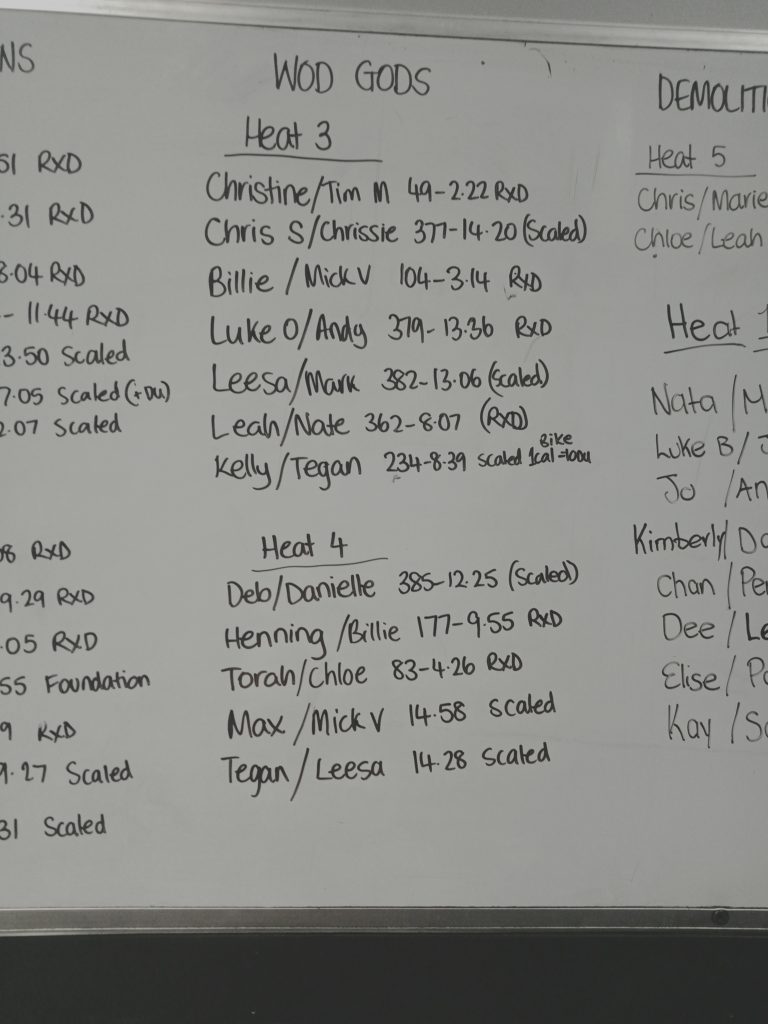 NS
51 RXD
.31 RXD
3.04 RXD
- 11.44 RXD
3.50 Scaled
7.05 Scaled (+DU)
2.07 Scaled
98 RXD
9.29 RXD
.05 RXD
55 Foundation
9 RXD
9.27 Scaled
31 Scaled
WOD GODS
Heat 3
Christine/Tim M 49-2.22 RXD
Chris S/Chrissie 377-14.20 (Scaled)
Billie / Mick V 104-3.14 RXD
Luke O/Andy 379-13.36 RXD
Leesa/Mark 382-13.06 (Scaled)
Leah/Nate 362-8.07 (RXD)
Bike
Kelly/Tegan 234-8.39 Scaled 1cal=10DU
Heat 4
Deb/Danielle 385-12.25 (Scaled)
Henning /Billie 177-9.55 RXD
Torah/Chloe 83-4.26 RXD
Max /Mick V 14.58 Scaled
Tegan / Leesa 14.28 Scaled
DEMOLITI
Heat 5
Chris/Marie
Chloe/Leah
Heat 1
Nata /M
Luke B/ J
Jo /An
Kimberly/Da
Chan / Per
Dee / Le
Elise/ Pa
Kay / Sa